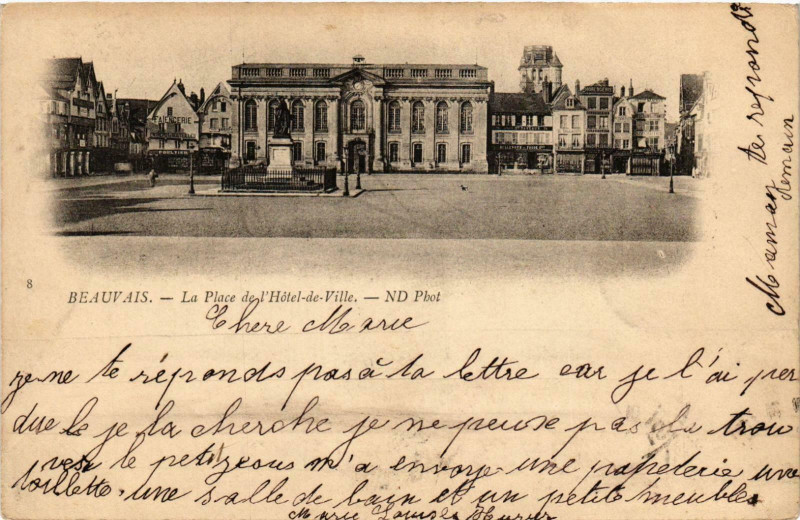 FAIENCERIE
8
BEAUVAIS. — La Place de l'Hôtel-de-Ville. — ND Phot
Chere Marie
je ne te réponds pas à ta lettre car je l'ai per
due le je la cherche je ne peuse pas la trou
ver le petit m'a envoye une papeterie une
toillette, une salle de bain et un petite meubles
Marie Louise
Maman te reprond
demain